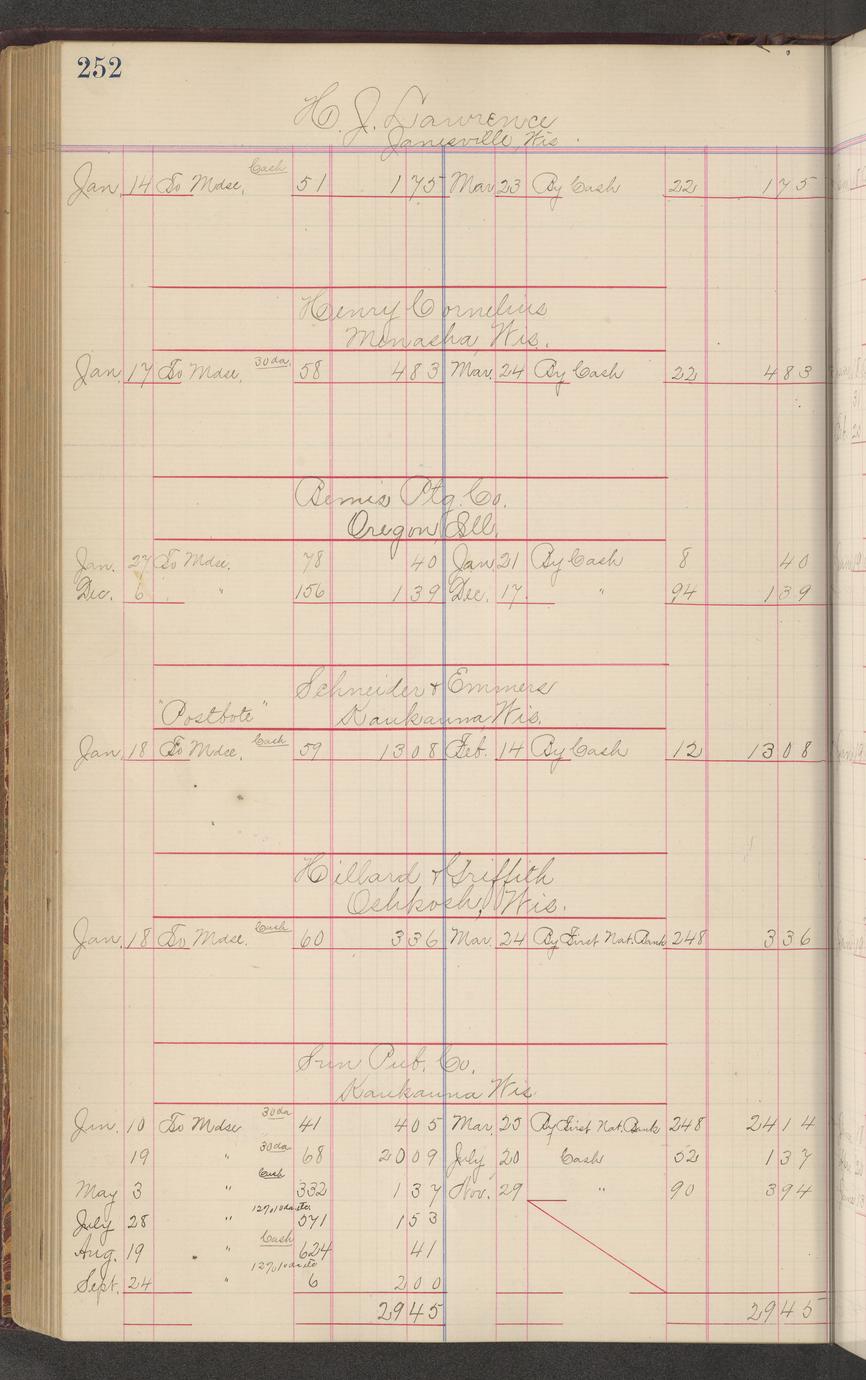 252
H. J. Lawrence
Janesville, Wis.
Jan. 14 To Mdse, Cash 51 1 75 Mar. 23 By Cash 22 1 75
Henry Cornelius
Menasha, Wis.
Jan. 17 To Mdse, 30 da. 58 4 83 Mar. 24 By Cash 22 4 83
Bemis Ptg. Co.
Oregon, Ill.
Jan. 27 To Mdse. 78 40 Jan. 21 By Cash 8 40
Dec. 6 " 156 1 39 Dec. 17 " 94 1 39
Schneider & Emmers
"Postbote" Kaukauna Wis.
Jan. 18 To Mdse, Cash 59 13 08 Feb. 14 By Cash 12 13 08
Hillard & Griffith
Oshkosh, Wis.
Jan. 18 To Mdse. Cash 60 3 36 Mar. 24 By First Nat. Bank 248 3 36
Sun Pub. Co.
Kaukauna Wis
Jan. 10 To Mdse 30 da 41 4 05 Mar. 25 By First Nat. Bank 248 24 14
19 " 30 da 68 20 09 July 20 Cash 52 1 37
May 3 " Cash 332 1 37 Nov. 29 " 90 3 94
July 28 " 12% 10 da etc. 571 1 53
Aug. 19 " Cash 624 41
Sept. 24 " 12% 10 da etc 6 2 00
29 45 29 45